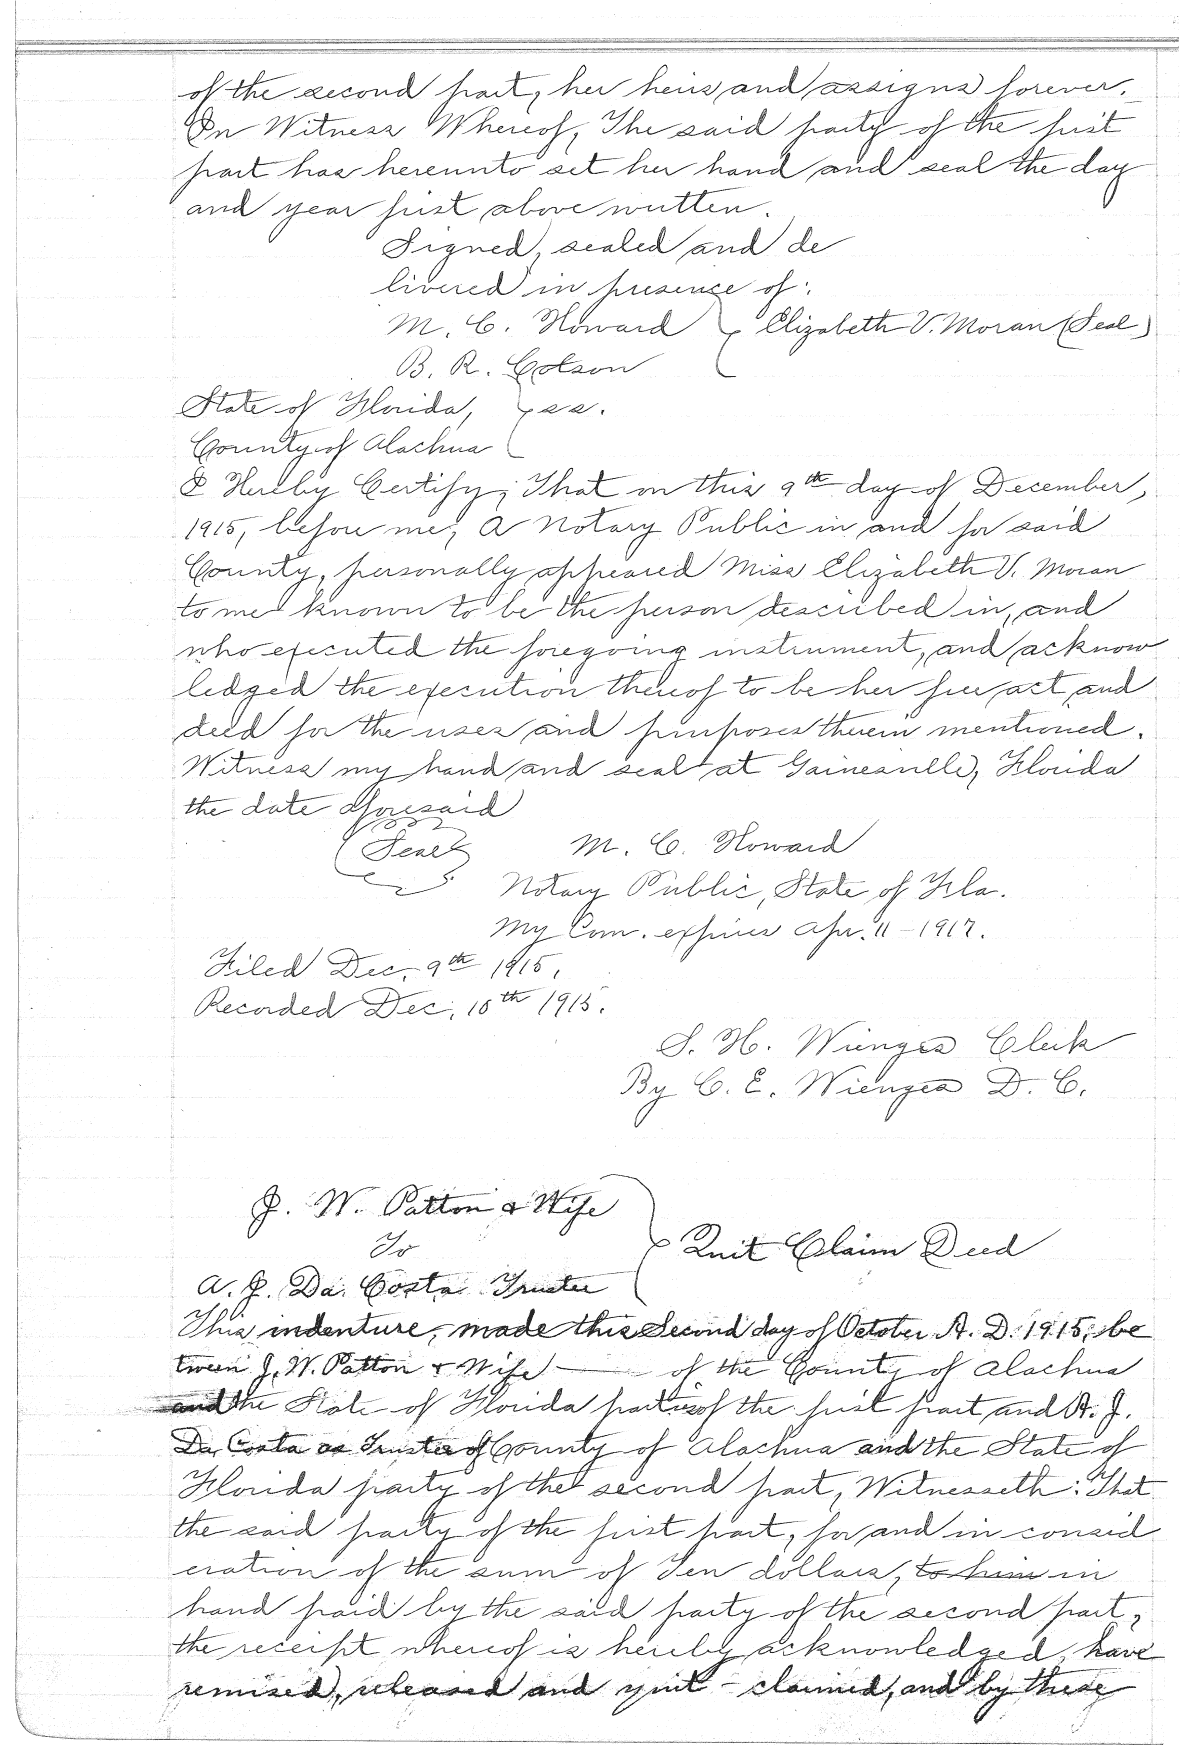 of the second part, her heirs and assigns forever.
In Witness Whereof, The said party of the first
part has hereunto set her hand and seal the day
and year first above written.
Signed, sealed and de
livered in presence of:
M. C. Howard Elizabeth V. Moran (Seal)
B. R. Colson
State of Florida, ss.
County of Alachua
I Hereby Certify; That on this 9th day of December,
1915, before me, A Notary Public in and for said
County, personally appeared Miss Elizabeth V. Moran
to me known to be the person described in, and
who executed the foregoing instrument, and acknow
ledged the execution thereof to be her free act and
deed for the uses and purposes therein mentioned.
Witness my hand and seal at Gainesville, Florida
the date aforesaid
(Seal) M. C. Howard
Notary Public, State of Fla.
My Com. expires Apr. 11-1917.
Filed Dec. 9th 1915.
Recorded Dec. 10th 1915.
S. H. Wienges Clerk
By C. E. Wienges D. C.
J. W. Patton & Wife
To Quit Claim Deed
A. J. Da. Costa Trustee
This indenture, made this Second day of October A. D. 1915, be
tween J. W. Patton & Wife — of the County of Alachua
and the State of Florida parties of the first part and A. J.
Da Costa as Trustee of County of Alachua and the State of
Florida party of the second part, Witnesseth: That
the said party of the first part, for and in consid
eration of the sum of Ten dollars, to him in
hand paid by the said party of the second part,
the receipt whereof is hereby acknowledged, have
remised, released and quit-claimed, and by these